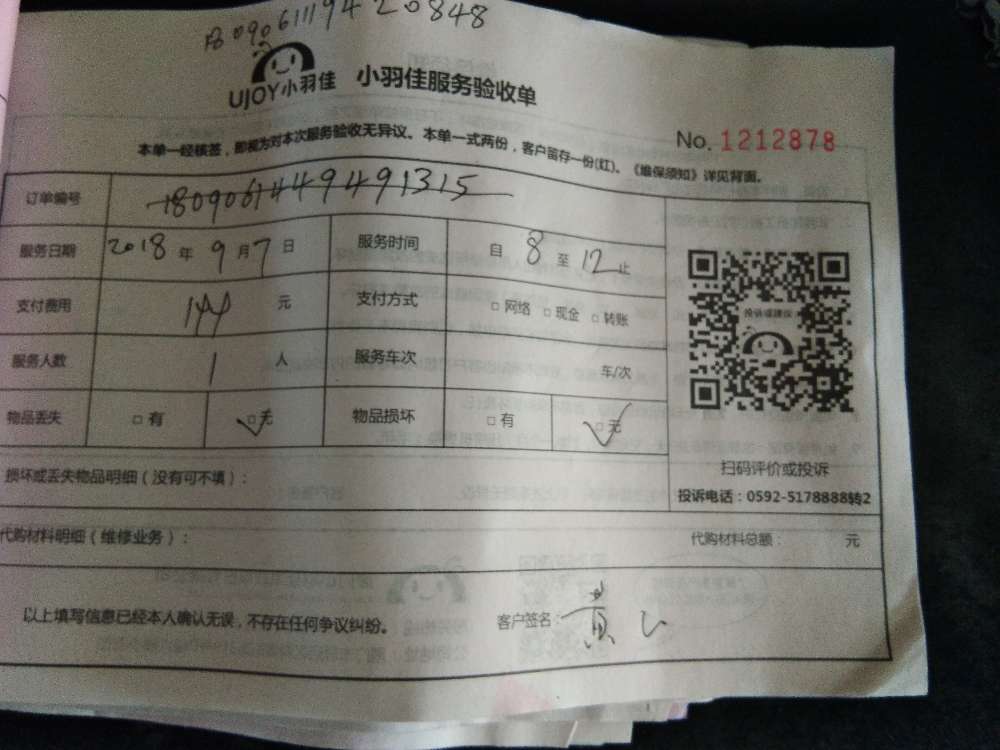 1809061119420848
UJOY小羽佳 小羽佳服务验收单
No. 1212878
本单一经核签，即视为对本次服务验收无异议。本单一式两份，客户留存一份(红)。《维保须知》详见背面。
订单编号 1809061449491315
服务日期 2018 年 9 月 7 日 服务时间 自 8 至 12 止
支付费用 144 元 支付方式 □ 网络 □ 现金 □ 转账
服务人数 1 人 服务车次 车/次
物品丢失 □ 有 □ 无 物品损坏 □ 有 □ 无
投诉或建议
扫码评价或投诉
投诉电话：0592-5178888转2
损坏或丢失物品明细（没有可不填）：
代购材料明细（维修业务）： 代购材料总额： 元
以上填写信息已经本人确认无误，不存在任何争议纠纷。 客户签名： 黄